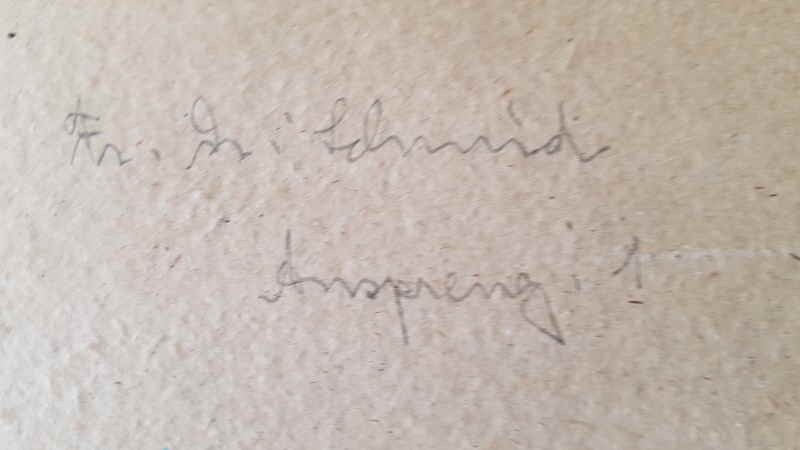 Fr. Dr. Schmid
Anspreng. 1